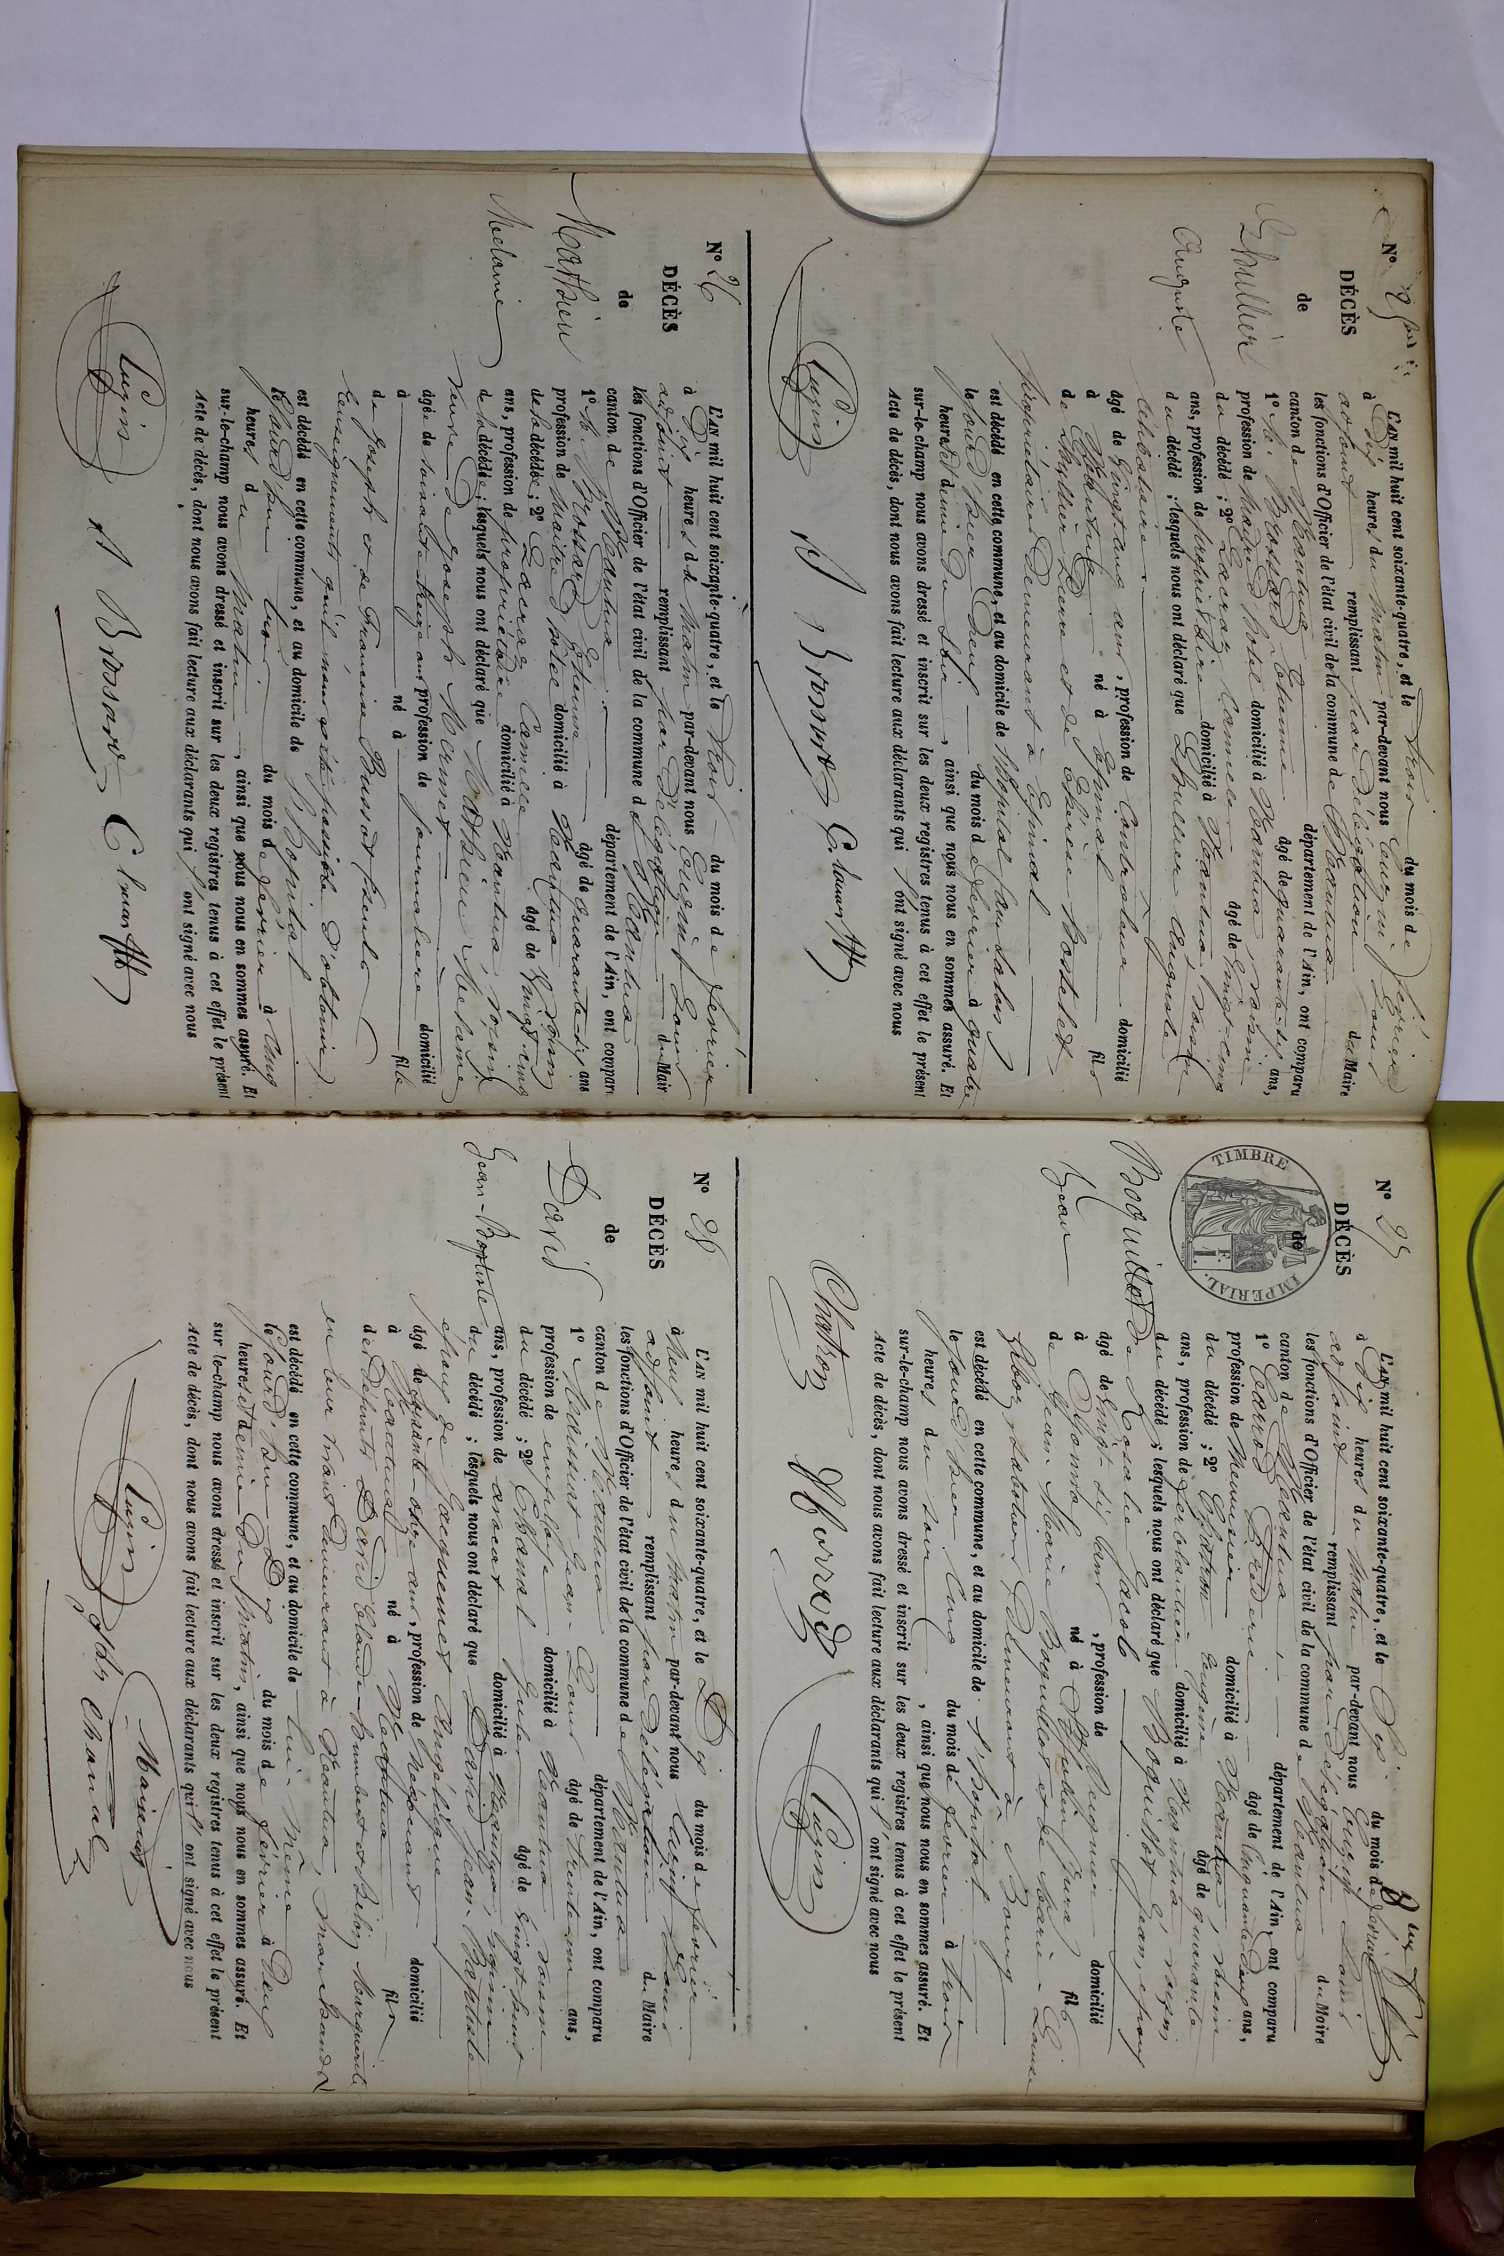 N° 25
DÉCÈS
de
Lhuillier
Auguste
L'AN mil huit cent soixante-quatre, et le trois du mois de février
à Dix heures du Matin par-devant nous Louis
adjoint remplissant par Délégation du Maire
les fonctions d'Officier de l'état civil de la commune de Nantua
canton de Nantua département de l'Ain, ont comparu
1° M. Brossard Etienne âgé de quarante six ans,
profession de Maître d'hôtel domicilié à Nantua, voisin
du décédé ; 2° Lacroix Camille âgé de vingt-cinq
ans, profession de propriétaire domicilié à Nantua, voisin
du décédé ; lesquels nous ont déclaré que Lhuillier Auguste
célibataire
âgé de vingt ans, profession de domicilié
à Nantua né à Epinal fils
de Lhuillier et de Thérèse
propriétaires Demeurant à Epinal
est décédé en cette commune, et au domicile de
le jour d'hier Deux du mois de février à quatre
heures et demie du soir, ainsi que nous nous en sommes assuré. Et
sur-le-champ nous avons dressé et inscrit sur les deux registres tenus à cet effet le présent
Acte de décès, dont nous avons fait lecture aux déclarants qui l'ont signé avec nous
A Brossard
N° 26
DÉCÈS
de
Mathieu
Melanie
L'AN mil huit cent soixante-quatre, et le trois du mois de février
à Dix heures du Matin par-devant nous Louis
adjoint remplissant par Délégation du Maire
les fonctions d'Officier de l'état civil de la commune de Nantua
canton de Nantua département de l'Ain, ont comparu
1° M. Brossard Etienne âgé de quarante six ans
profession de Maître d'hôtel domicilié à Nantua voisin
de la décédée ; 2° Lacroix Camille âgé de vingt-cinq
ans, profession de propriétaire domicilié à Nantua, voisin
de la décédée ; lesquels nous ont déclaré que Mathieu Melanie
veuve de Joseph Mermet
âgée de soixante treize ans profession de journalière domicilié
à né à fille
de Joseph et de Françoise
renseignements qu'il nous a été possible d'obtenir
est décédé en cette commune, et au domicile de l'hôpital
le jour d'hui trois du mois de février à cinq
heures du Matin, ainsi que nous nous en sommes assuré. Et
sur-le-champ nous avons dressé et inscrit sur les deux registres tenus à cet effet le présent
Acte de décès, dont nous avons fait lecture aux déclarants qui l'ont signé avec nous
A Brossard
TIMBRE IMPERIAL. 1 F.
N° 27
DÉCÈS
de
Boquillod
Jean
L'AN mil huit cent soixante-quatre, et le Six du mois de février
à Dix heures du Matin par-devant nous Louis
adjoint remplissant par Délégation du Maire
les fonctions d'Officier de l'état civil de la commune de Nantua
canton de Nantua département de l'Ain, ont comparu
1° âgé de cinquante deux ans,
profession de Menuisier domicilié à Nantua, voisin
du décédé ; 2° Chatron Eugène âgé de quarante
ans, profession de ferblantier domicilié à Nantua, voisin
du décédé ; lesquels nous ont déclaré que Boquillod Jean, époux
de Rosalie Jacob
âgé de vingt-six ans, profession de domicilié
à Oyonnax né à (Jura) fils
de Jean Marie Boquillod et de Marie Louise
Demeurant à
est décédé en cette commune, et au domicile de l'hôpital
le jour d'hier Cinq du mois de février à trois
heures du soir, ainsi que nous nous en sommes assuré. Et
sur-le-champ nous avons dressé et inscrit sur les deux registres tenus à cet effet le présent
Acte de décès, dont nous avons fait lecture aux déclarants qui l'ont signé avec nous
Chatron
N° 28
DÉCÈS
de
David
Jean-Baptiste
L'AN mil huit cent soixante-quatre, et le Dix du mois de février
à Neuf heures du Matin par-devant nous Louis
adjoint remplissant par Délégation du Maire
les fonctions d'Officier de l'état civil de la commune de Nantua
canton de Nantua département de l'Ain, ont comparu
1° Maissiat Jean-Louis âgé de trente un ans,
profession de employé domicilié à Nantua, voisin
du décédé ; 2° Chanal Jules âgé de vingt huit
ans, profession de avocat domicilié à Nantua, voisin
du décédé ; lesquels nous ont déclaré que David Jean Baptiste
époux de Jacquemet Angélique
âgé de soixante-onze ans, profession de Négociant domicilié
à Nantua né à Nantua fils
de Defunts David Claude-Humbert et Marguerite
en leur vivant Demeurant à Nantua, marchands
est décédé en cette commune, et au domicile de lui-même
le jour d'hui Dix du mois de février à Deux
heures et demie du Matin, ainsi que nous nous en sommes assuré. Et
sur-le-champ nous avons dressé et inscrit sur les deux registres tenus à cet effet le présent
Acte de décès, dont nous avons fait lecture aux déclarants qui l'ont signé avec nous
Maissiat
Jles Chanal